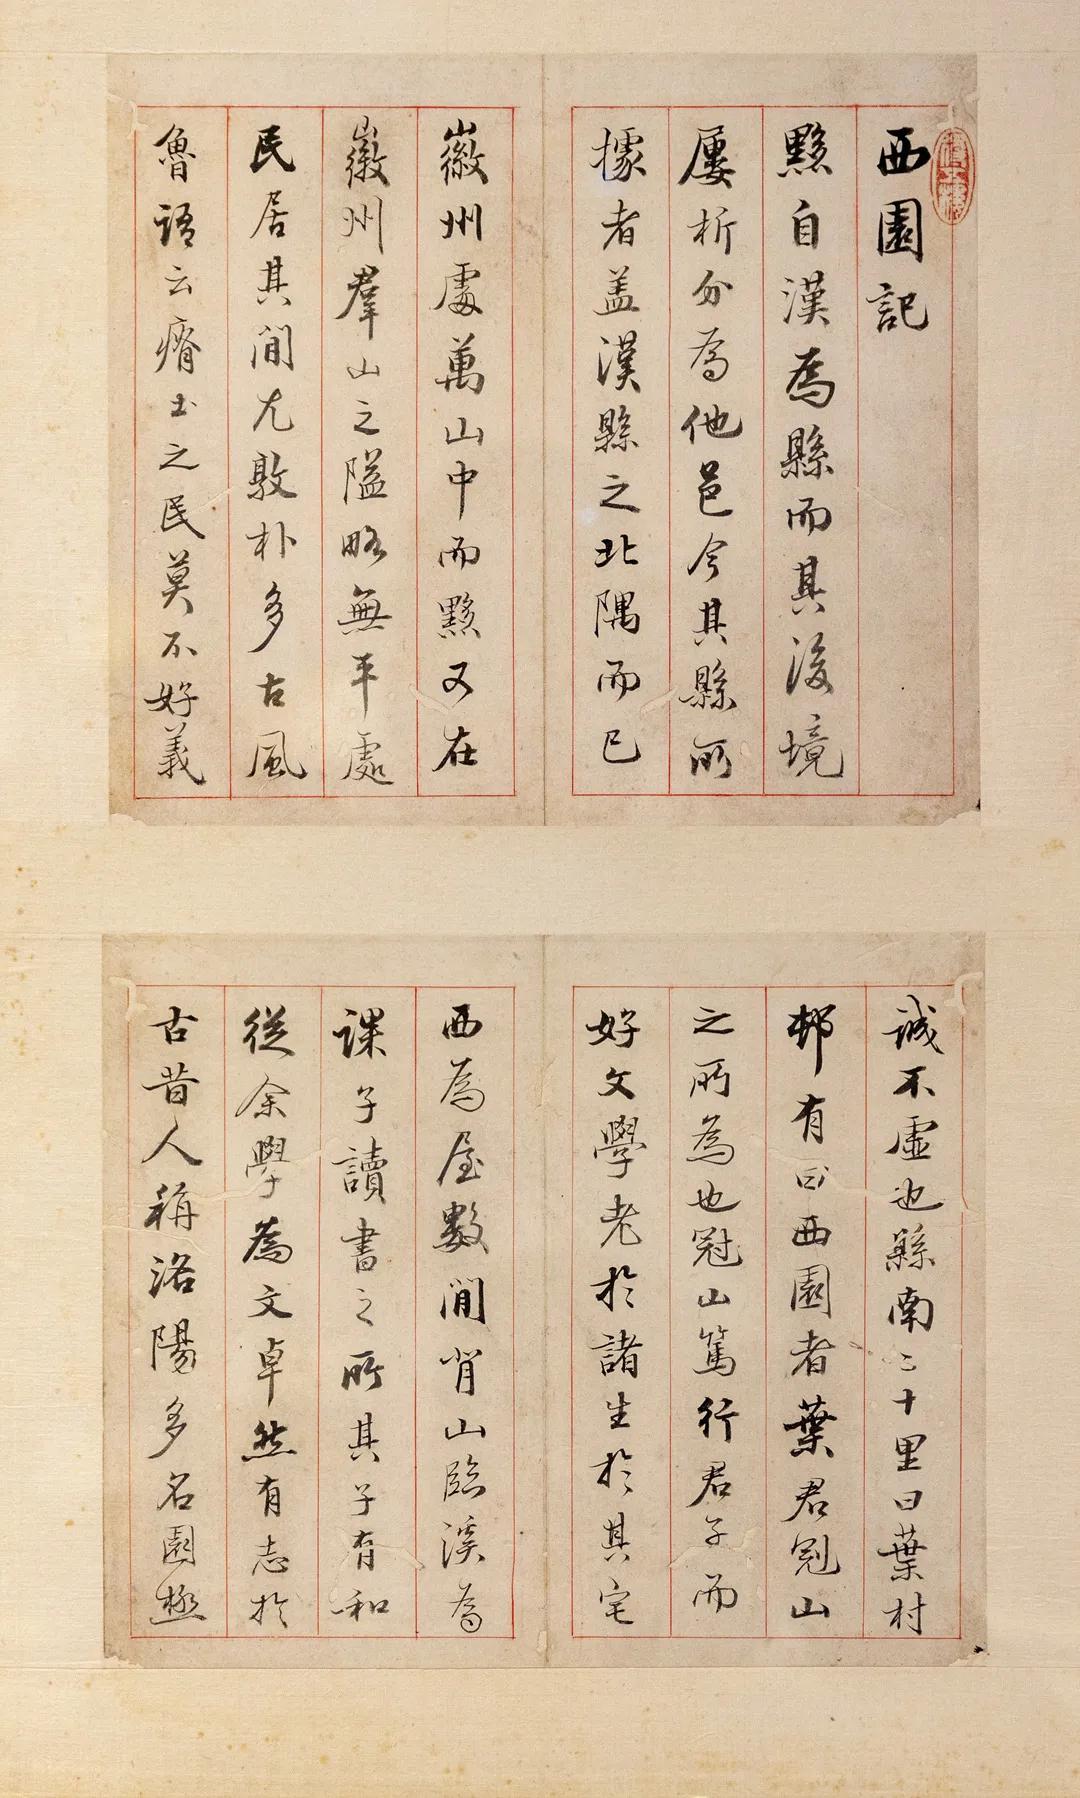 西園記
黟自漢為縣而其後境
屢析分為他邑今其縣所
據者蓋漢縣之北隅而已
徽州處萬山中而黟又在
徽州羣山之隘略無平處
民居其間尤敦朴多古風
魯語云瘠土之民莫不好義
誠不虛也縣南二十里曰葉村
邨有曰西園者葉君冠山
之所為也冠山篤行君子而
好文學老於諸生於其宅
西為屋數間背山臨溪為
課子讀書之所其子有和
從余學為文卓然有志於
古昔人稱洛陽多名園極